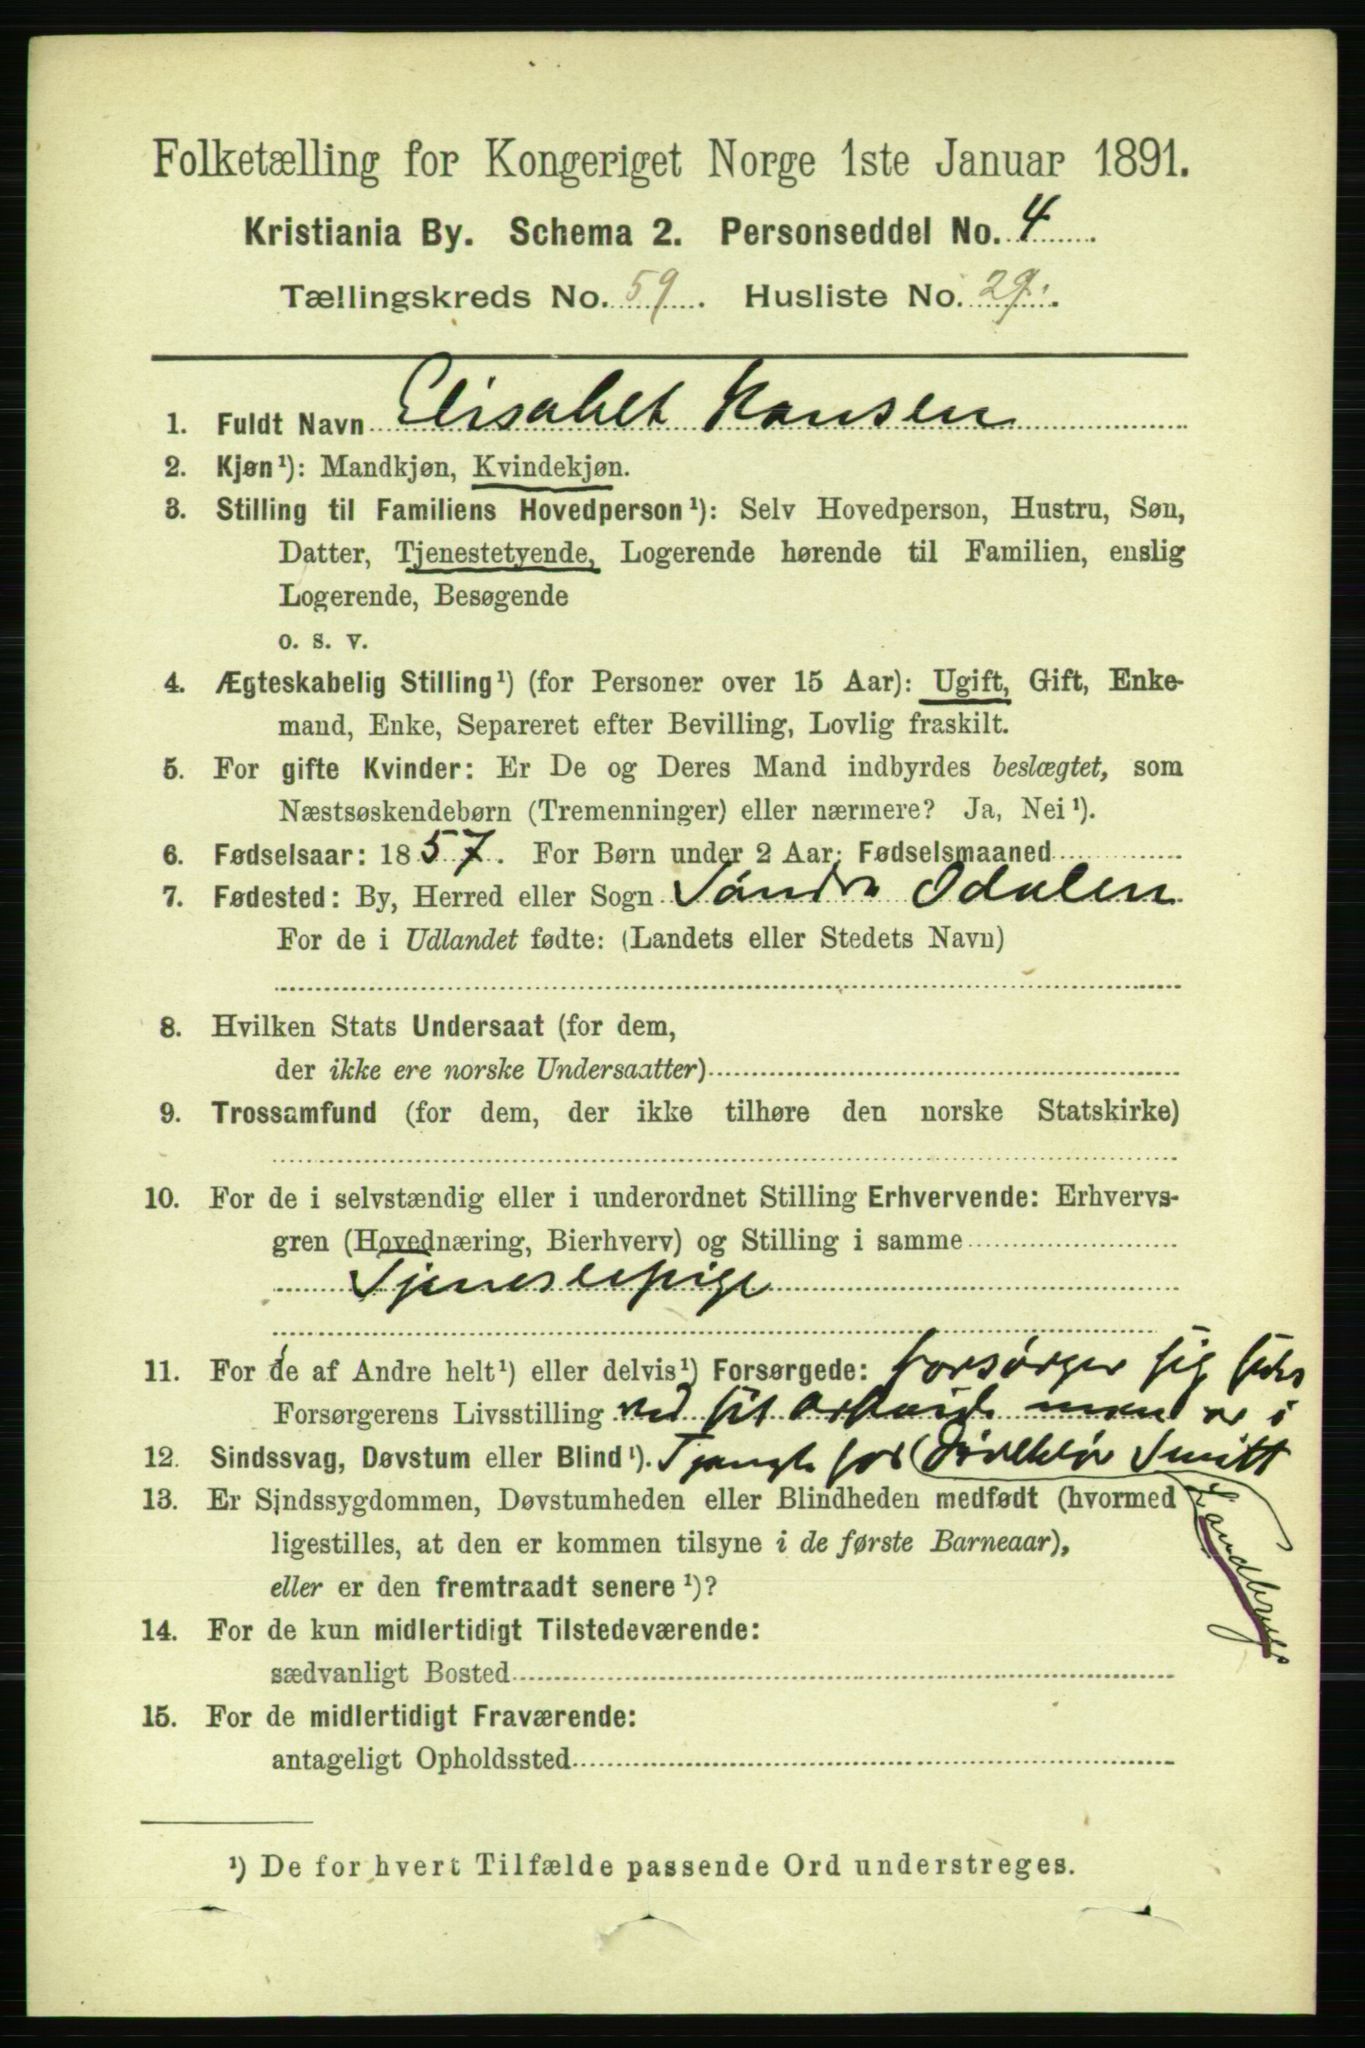 Folketælling for Kongeriget Norge 1ste Januar 1891.
Kristiania By. Schema 2. Personseddel No. 4
Tællingskreds No. 59. Husliste No. 29.
1. Fuldt Navn Elisabet Hansen
2. Kjøn¹): Mandkjøn, Kvindekjøn.
3. Stilling til Familiens Hovedperson¹): Selv Hovedperson, Hustru, Søn,
Datter, Tjenestetyende, Logerende hørende til Familien, enslig
Logerende, Besøgende
o. s. v.
4. Ægteskabelig Stilling¹) (for Personer over 15 Aar): Ugift, Gift, Enke-
mand, Enke, Separeret efter Bevilling, Lovlig fraskilt.
5. For gifte Kvinder: Er De og Deres Mand indbyrdes beslægtet, som
Næstsøskendebørn (Tremenninger) eller nærmere? Ja, Nei¹).
6. Fødselsaar: 1857. For Børn under 2 Aar: Fødselsmaaned
7. Fødested: By, Herred eller Sogn Søndre Odalen
For de i Udlandet fødte: (Landets eller Stedets Navn)
8. Hvilken Stats Undersaat (for dem,
der ikke ere norske Undersaatter)
9. Trossamfund (for dem, der ikke tilhøre den norske Statskirke)
10. For de i selvstændig eller i underordnet Stilling Erhvervende: Erhvervs-
gren (Hovednæring, Bierhverv) og Stilling i samme
Tjenestepige
11. For de af Andre helt¹) eller delvis¹) Forsørgede: forsørger sig
Forsørgerens Livsstilling ved sit arbeide men er i
12. Sindssvag, Døvstum eller Blind¹). for Smitt
13. Er Sindssygdommen, Døvstumheden eller Blindheden medfødt (hvormed
ligestilles, at den er kommen tilsyne i de første Barneaar),
eller er den fremtraadt senere¹)?
14. For de kun midlertidigt Tilstedeværende:
sædvanligt Bosted
15. For de midlertidigt Fraværende:
antageligt Opholdssted
¹) De for hvert Tilfælde passende Ord understreges.